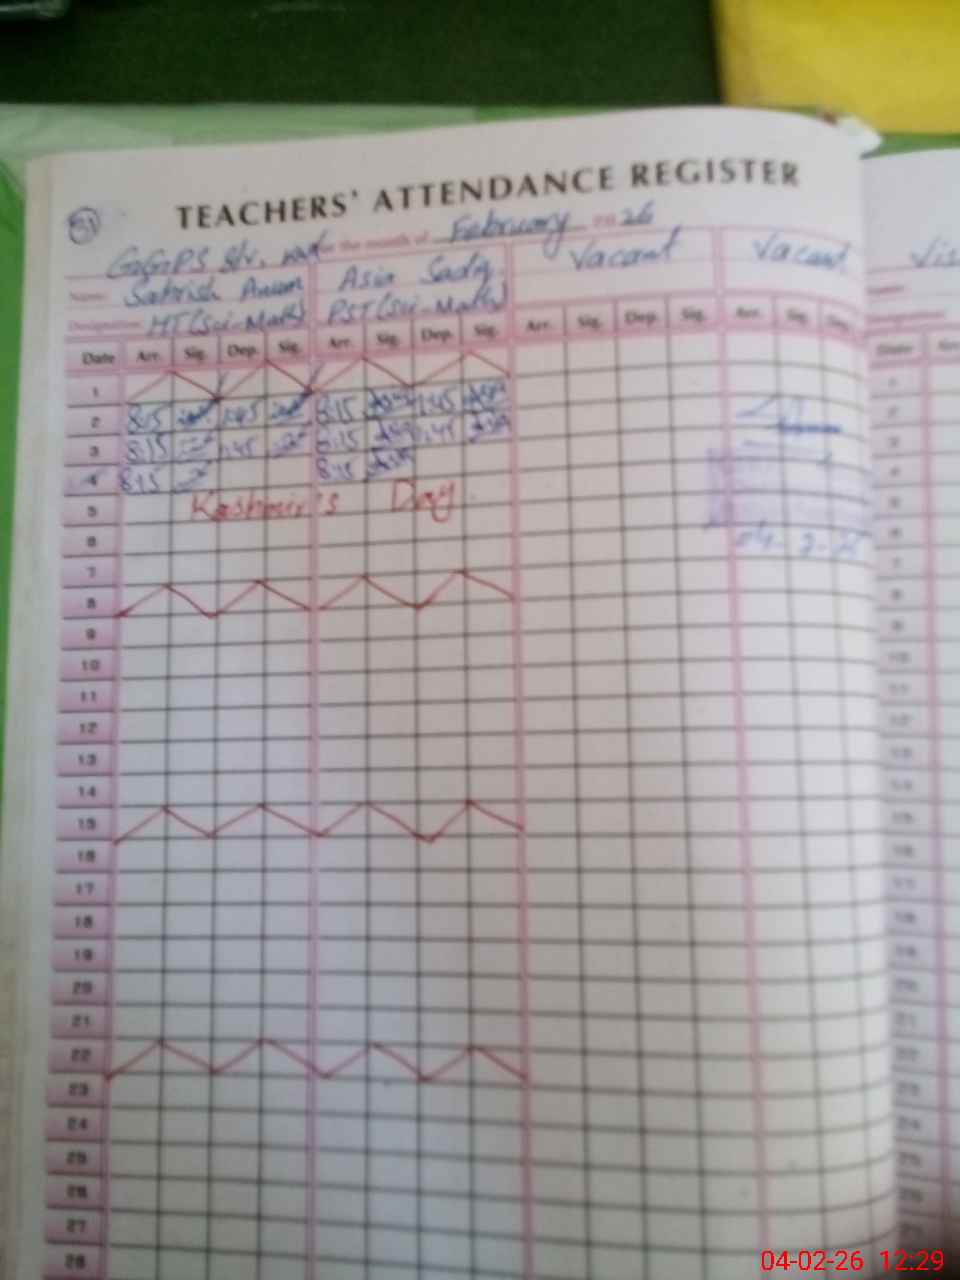 TEACHERS' ATTENDANCE REGISTER
51
GGPS for the month of February 2026
Name: Sahrish Anum Asia Sadiq Vacant Vacant
Designation HT (Sci-Math) PST (Sci-Math)
Date Arr. Sig. Dep. Sig. Arr. Sig. Dep. Sig. Arr. Sig. Dep. Sig. Arr. Sig. Dep. Date
1 1
2 8:15 1:45 8:15 1:45 2
3 8:15 1:45 8:15 1:45 3
4 8:15 8:15 4
5 Kashmir's Day 5
6 04-2-26 6
7 7
8 8
9 9
10 10
11 11
12 12
13 13
14 14
15 15
16 16
17 17
18 18
19 19
20 20
21 21
22 22
23 23
24 24
25 25
26 26
27 27
28
04-02-26 12:29